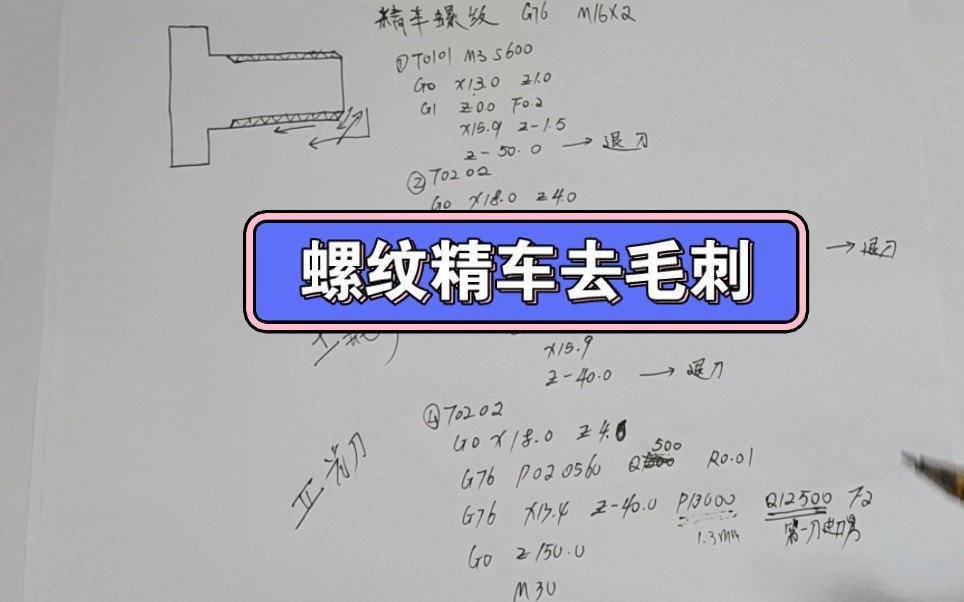 精车螺纹 G76 M16X2
①T0101 M3 S600
G0 X13.0 Z1.0
G1 Z0.0 F0.2
X15.9 Z-1.5
Z-50.0 → 退刀
②T0202
G0 X18.0 Z4.0
螺纹精车去毛刺
→退刀
X15.9
Z-40.0 → 退刀
④T0202
G0 X18.0 Z4.0
II 光刀
G76 P020560 Q500 R0.01
G76 X13.4 Z-40.0 P13000 Q12500 F2
1.3mm 第一刀进刀量
G0 Z150.0
M30